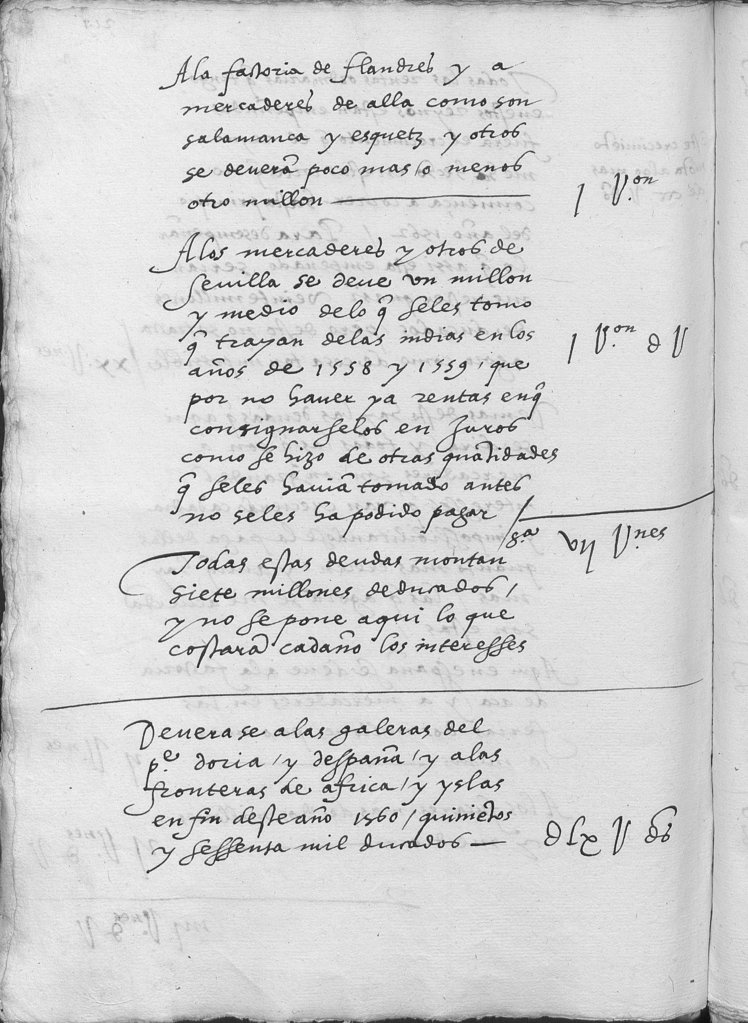 A la factoria de flandres y a
mercaderes de alla como son
salamanca y esquetz y otros
se deuerā poco mas/o menos
otro millon — I U.on
A los mercaderes y otros de
seuilla se deue vn millon
y medio de lo q̃ se les tomo
q̃ trayan de las indias en los
años de 1558 y 1559 / que
por no hauer ya rentas en q̃
consignarselos en Juros
como se hizo de otras quātidades
q̃ se les hauiā tomado antes
no se les ha podido pagar /
I U.on d U
Todas estas deudas montan
siete millones de ducados /
y no se pone aqui lo que
costarā cadaño los interesses
VII U.nes
Deuerase a las galeras del
p.e doria / y despaña / y a las
fronteras de africa / y yslas
en fin deste año 1560 / quiniētos
y sessenta mil ducados — dlx U ds